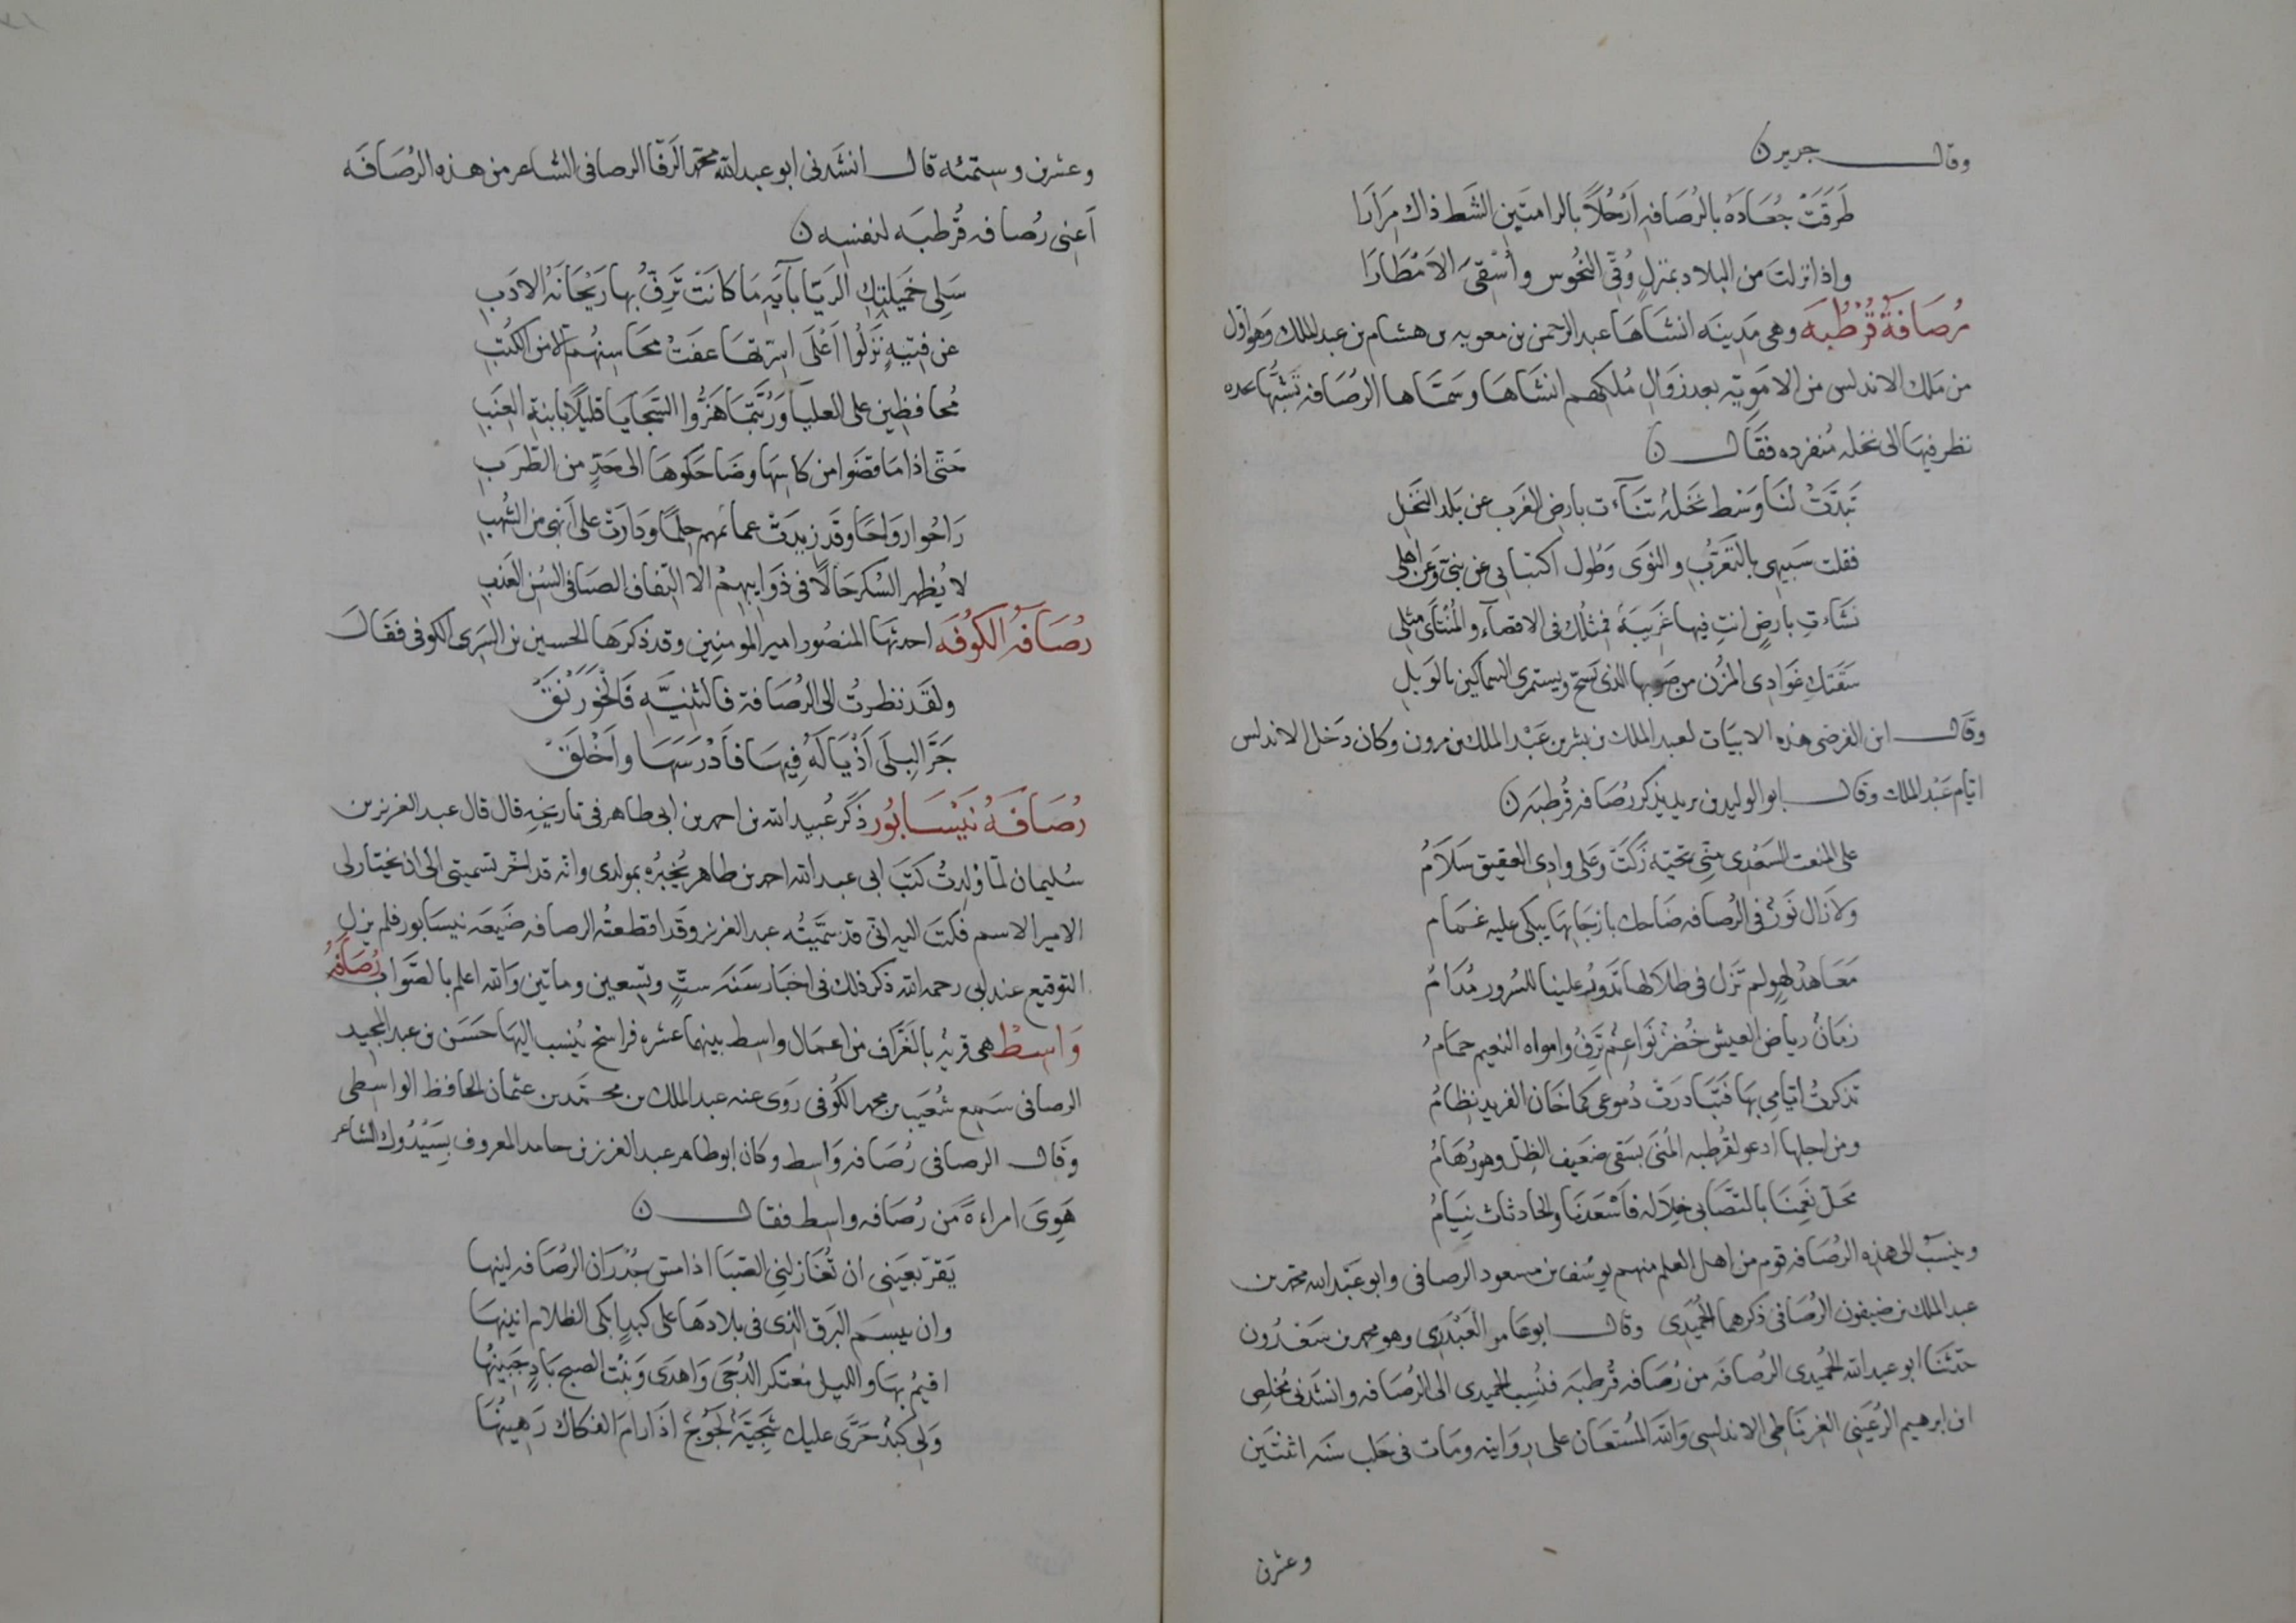 وقال جرير ن
طَرَقَتْ جُعَادَهُ بالرُصَافهِ اَرْحُلاً بالرامتَين الشَط ذاك مزَارَا
واذا نزلتَ من البلاد بمنزلٍ وُقّى النحُوس وأسْقىَ الامْطَارَا
رُصَافةُ قُرْطُبَه وهى مَدِينَه انشَاهَا عبد الرحمن بن معويه بن هشام بن عبد الملك وَهو اول
من مَلك الاندلس من الامَوِيّه بعد زوَالِ مُلكِهم انشَاهَا وسَمَّاها الرُصَافه تَشبُّهًا
نظر فيهَا الى نخله مُنفرده فقَال ن
تَبدَّتْ لنَا وَسْط نخَلهُ تنَآءت بارض الغَرب عن بَلد النَخل
فقلت سَبيهى بالتغَرّبِ والنوَى وَطُول اكتيابى عن بنىّ وَعن اهلى
نشَاءتِ بارضٍ انتِ فيها غرَيبَهٌ فمثلك فى الاقصآءِ والمُنتَأى مثلى
سَقَتكِ غوَادِى المُزْن من صَوبها الذى تَسحّ ويستمرى السماكين بالوَبلِ
وقَال ابن الفرضى هذه الابيَات لعبد الملك بن بشر بن عَبْد الملك بن مرون وكان دَخل الاندلس
ايّام عَبْد الملك وقال ابو الوليد بن يذكر رُصَافه قُرطبَه ن
على المنعت السَعْدى منّى تحيّه زَكَتْ وعَلى وادِى العقيق سَلاَمُ
وَلاَ زَال نَورٌ فى الرُصَافه ضَاحك بارجَائهَا يبكى عليه غمَام
مَعَاهدُ لهوٍ لم تَزل فى ظلاَلها تَدوُر علينا للسُرور مُدَامُ
زمَانٌ رياضُ العيش خُضْرٌ نَوَاعِمُ تَرِفُّ وامواه النعيم جمَامُ
تذكرتُ ايّامى بهَا فتَبَادرَتْ دُموعى كما خَان الفريد نِظامُ
ومن اجلها ادعو لقُرطبه المُنَى بسَقى ضعَيف الطِلّ وهو رُهَامُ
مَحَلّ نَعِمْنَا بالتصَابى خلاَله فاَسْعَدنَا والحادثَاتُ نِيَامُ
وينسَبُ الى هَذهِ الرُصَافه قوم من اهل العلم منهم يوسُف بن مسعود الرصافى وابو عَبْد الله محمد بن
عبد الملك بن ضيفون الرُصَافى ذكرهما الحُمَيدَى وقال ابو عَامر العَبْدَرى وهو محمد بن سَعْدُون
حدّثنَا ابو عبد الله الحُميدى الرُصافَه من رُصَافه قُرطبَه فنُسِب الحميدى الى الرُصَافه وانشَدنى مُخلِص
ابن ابرهيم الرُعَينى الغرِنَاطى الاندلسى وَالله المُستعَان على رِوَايته ومَات فى حَلب سنَه اثنتَين
وعشرين
وعشرين وستمئه قال انشَدنى ابو عبد الله محمد الرَفّا الرصافى الشاعر من هذه الرُصَافَه
اَعِنى رُصافه قُرطبَه لنفسِه ن
سَلِى خميْلتكِ الرَيّا بآيَهِ مَا كانَتْ تَرِفُّ بها رَيْحَانَهُ الادَبِ
عن فتيَهٍ نَزَلُوا اَعْلَى اسرّتها عفَتْ محَاسِنهُم الا من الكتُبِ
مُحافِظِين على العليَا وَرُبّتمَا هَزُّوا السَجايَا قليلاً بابنةِ العِنَبِ
حتّى اذا مَا قضَوا من كاسِهَا وضَاحَكوهَا الى حَدٍّ من الطَرَبِ
رَاحُوا رَواحًا وقَد زِيدَتْ عمائمهم حِلمًا وَدَارَتْ على اَبْهى من الشُهُبِ
لا يُظهر السُكر حَالاً فى ذوَايبهِمْ الا التِفاف الصَبا فى السُن العَذَبِ
رُصَافهُ الكُوفَه احدثهَا المنصُور امير المومنين وقد ذكرَها الحسين بن السَرى الكوفى فقَال
ولقَد نظرتُ الى الرُصَافة فالثنِيَّه فَالخوَرنَقْ
جَرَّ البِلَى اَذْيَالَهُ فِيهَا فاَدْرَسَهَا واَخْلَقْ
رُصَافَهُ نَيْسَابُور ذكَر عُبيد الله بن احمد بن ابى طاهر فى تاريخهِ قال قال عبد العزيز بن
سُليمان لمّا وُلدِتُ كتبَ ابى عبد الله احمد بن طاهر يُخبره بمولدى وانّه قد اخّر تسميتى الى ان يختار لى
الامير الاسم فكتَبَ اليه انّى قد سَمَّيتُه عبد العزيز وقَد اقطعتُه الرصافه ضَيعَه نيسَابور فلم يزل
التوقيع عند ابى رحمه الله ذكر ذلك فى اخبَار سَنَه ستٍّ وتسعين وماتين وَالله اعلم بالصَواب رُصَافَهُ
وَاسِطْ هى قريه بالغَرّاف من اعمَال واسِط بينهما عشره فراسخ يُنسب اليهَا حَسَن بن عبد المجيد
الرصَافى سَمِع شُعَيب بن محمد الكُوفى رَوَى عنه عبد الملك بن محمّد بن عثمان الحافظ الواسِطى
وقَال الرصافى رُصَافه وَاسِط وكان ابو طاهر عبد العزيز بن حامد المعروف بسَيْدُوك الشاعر
هَوِىَ امراءةً من رُصَافه واسِط فقال ن
يَقرّ بعَينى ان تُغَازلنِى الصَبَا اذا مسّ جُدْرَان الرُصَافه لينها
وان يبسم البَرق الذى فى بلادهَا على كبدٍ ابكى الظلام انينهَا
اقيمُ بهَا والليل مُعتكر الدُجَى وَاهدَى وَبنْت الصبح بَادٍ جَبينُها
وَلى كبدٌ حَرَّى عليك شَجِيَّهٌ لجوُجٌ اذَا رام الفكاك رَهِينُهَا